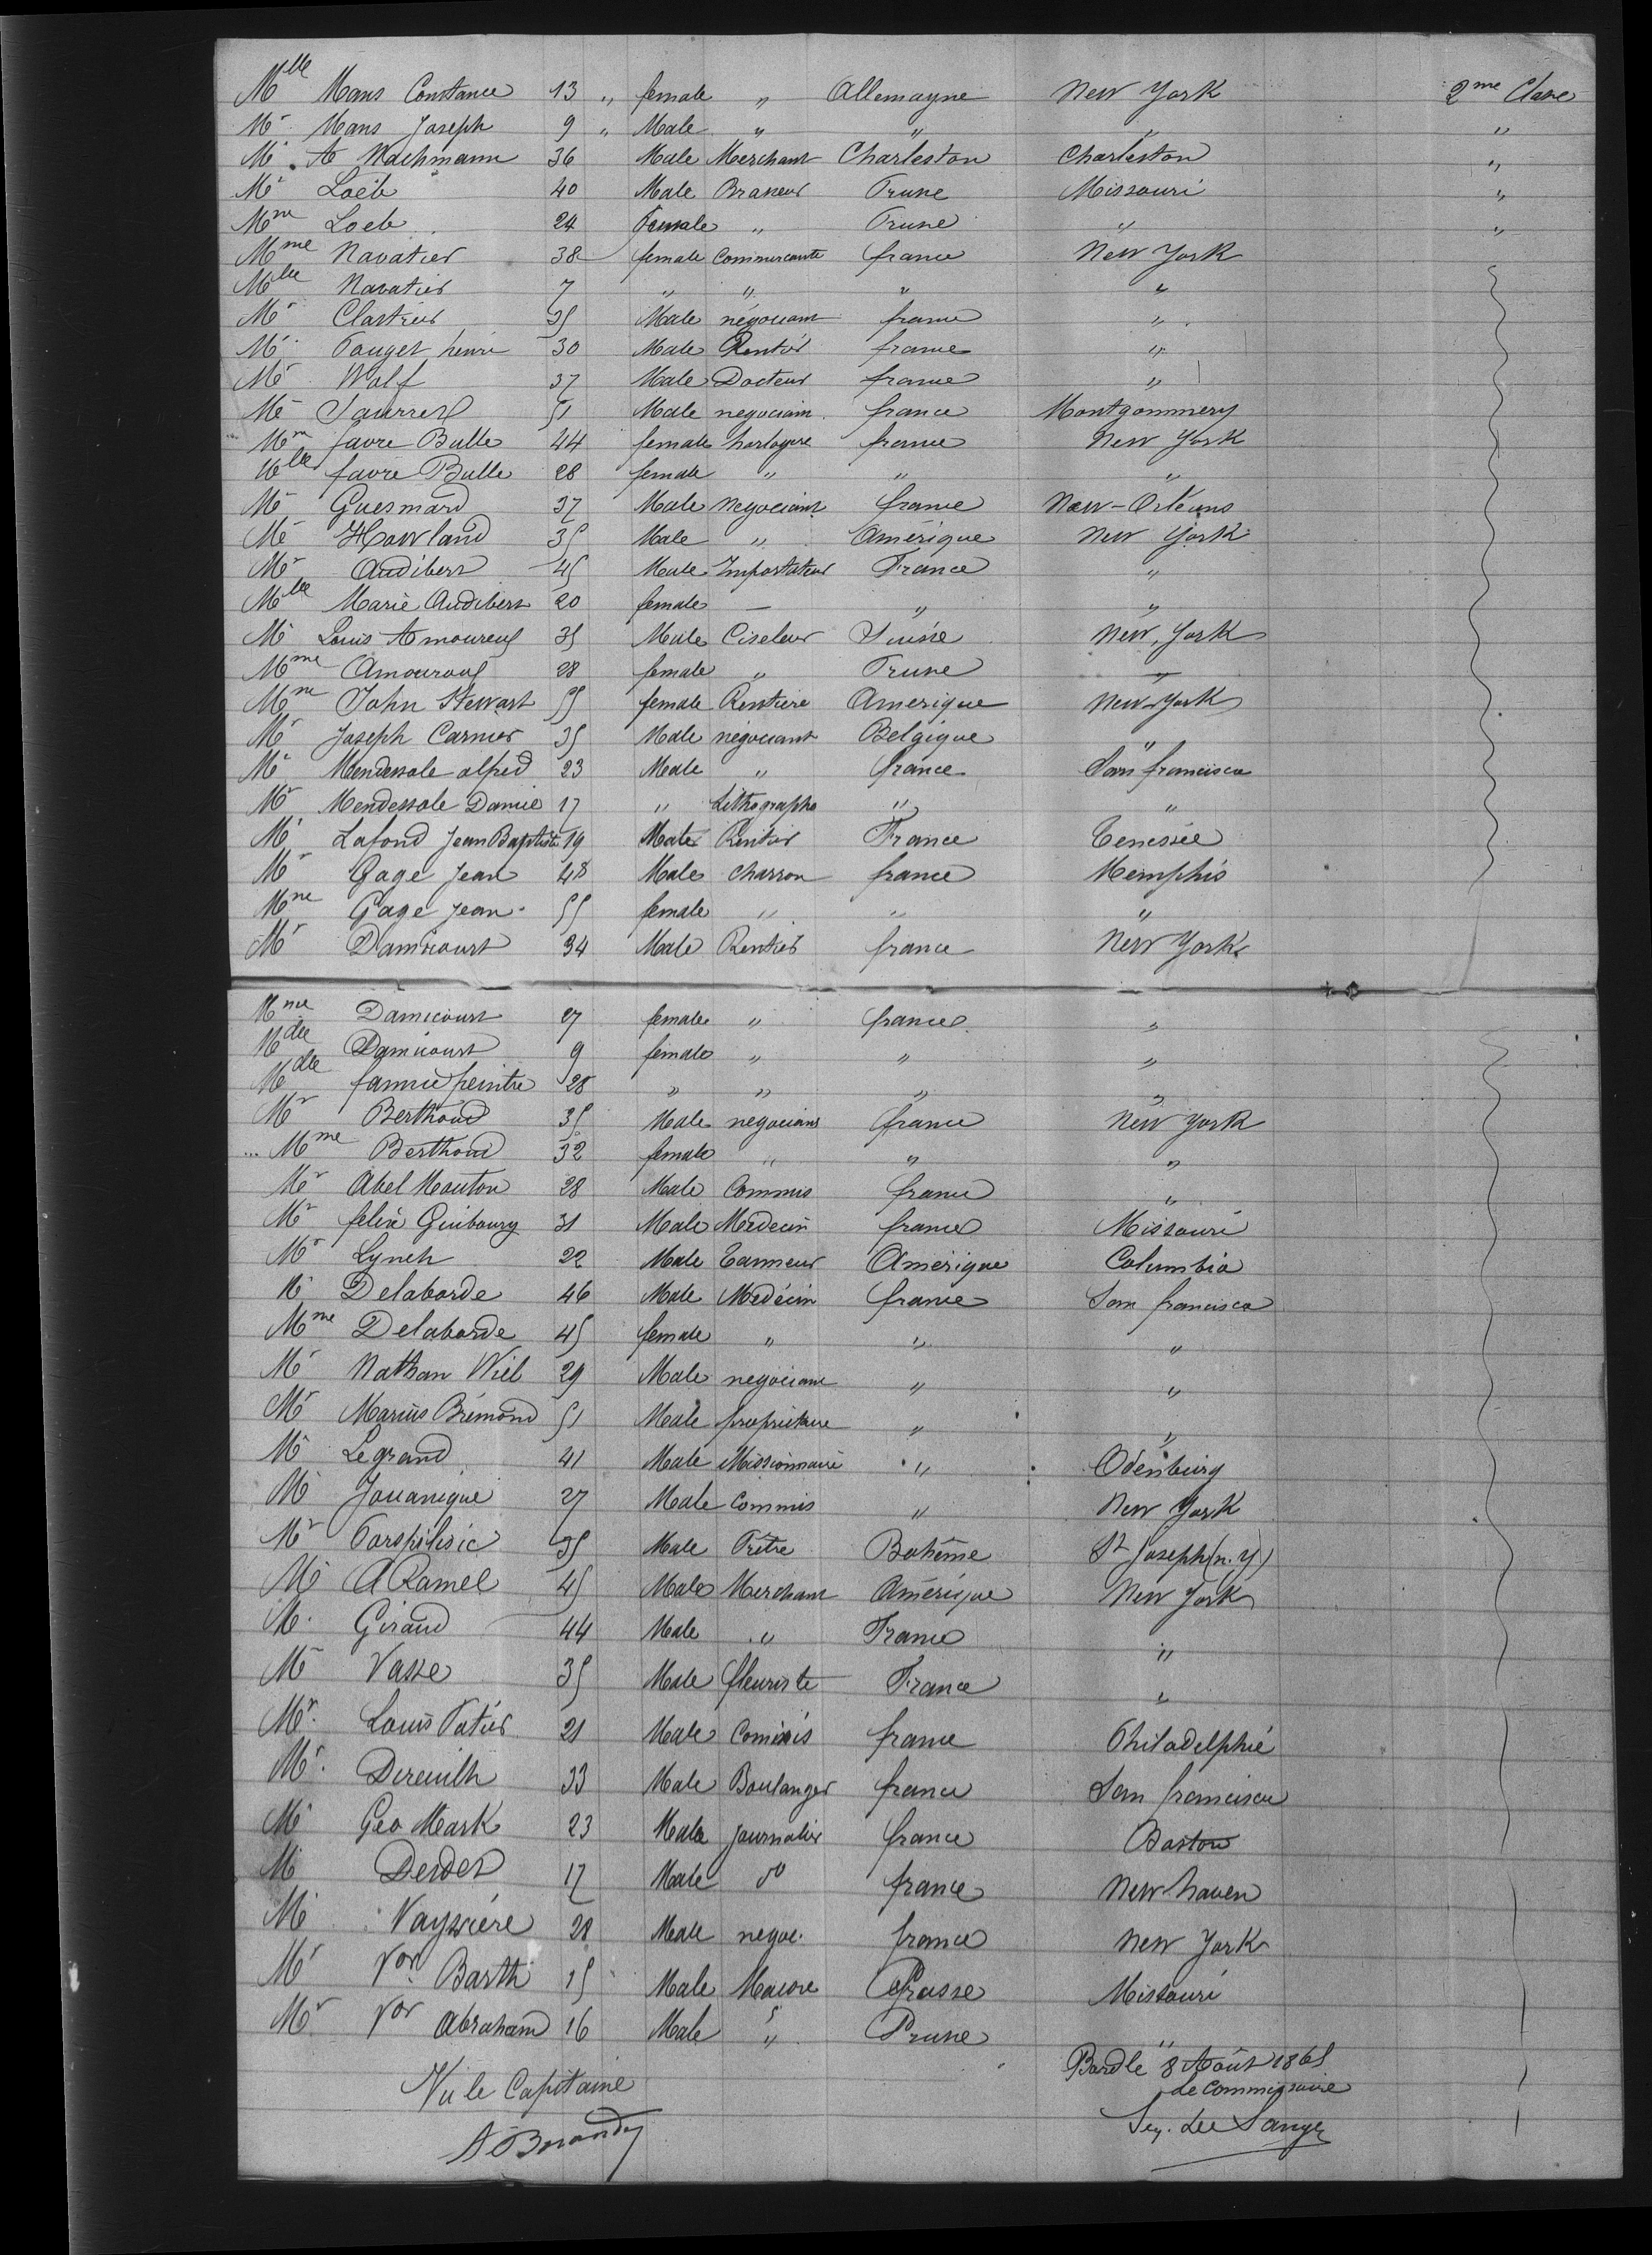 Mlle Mans Constance 13 " female " Allemagne New York 2me Classe
Mr Mans Joseph 9 " Male " " " "
Mr A Wachmann 36 Male Merchant Charleston Charleston "
Mr Loëb 40 Male Brasseur Prusse Missouri "
Mme Loeb 24 Female " Prusse " "
Mme Navatier 38 female Commercante france New York
Mlle Navatier 7 " " " "
Mr Clastrier 35 Male négociant france "
Mr Pouget henri 30 Male Rentier france "
Mr Wolf 37 Male Docteur france "
Mr 51 Male negociant france Montgommery
Mme favre Bulle 44 female horlogere france New York
Mlle favre Bulle 28 female " " "
Mr Guesnard 37 Male Negociant france New-Orléans
Mr Howland 35 Male " Amérique New York
Mr Audibert 45 Male Importateur France "
Mlle Marie Audibert 20 female — " "
Mr Louis Amoureux 35 Male Ciseleur Suisse New York
Mme Amouroux 28 female " Prusse "
Mme John Stewart 55 female Rentiere Amerique New York
Mr Joseph Carnier 35 Male négociant Belgique "
Mr Mendessole alfred 23 Male " france San francisco
Mr Mendessole Daniel 17 " Lithographe " "
Mr Lafond Jean Baptiste 19 Male Rentier France Tenessée
Mr Gage Jean 48 Male charron france Memphis
Mme Gage Jean 55 female " " "
Mr Damicourt 34 Male Rentier france New York
Mme Damicourt 27 female " france "
Mdlle Damicourt 9 female " " "
Mdlle fannie peintre 28 " " " "
Mr Berthoud 35 Male negociant france New York
Mme Berthoud 32 female " " "
Mr Abel Mouton 28 Male Commis france "
Mr felix Guibourg 31 Male Medecin france Missouri
Mr Lynch 22 Male Tanneur Amérique Columbia
Mr Delaborde 46 Male Medécin france San francisco
Mme Delaborde 45 female " " "
Mr Nathan Wiel 29 Male negociant " "
Mr Marius Brémond 51 Male propriétaire " "
Mr Legrand 41 Male Missionnaire " Odenburg
Mr Jouanique 27 Male Commis " New York
Mr 35 Male Prêtre Bohême St Joseph (n.y)
Mr A Ramel 45 Male Merchant Amérique New York
Mr Giraud 44 Male " France "
Mr Vasse 35 Male fleuriste France "
Mr Louis Patier 21 Male Commis france Philadelphie
Mr Dereuilh 33 Male Boulanger france San francisco
Mr Geo Mark 23 Male Journalier france Boston
Mr Derder 17 Male do france New haven
Mr Vayssiére 28 Male negoc. france New York
Mr Vor Barth 15 Male Prusse Missouri
Mr Vor Abraham 16 Male " Prusse "
Bord le 8 Août 1865
Vu le Capitaine
Le Commissaire